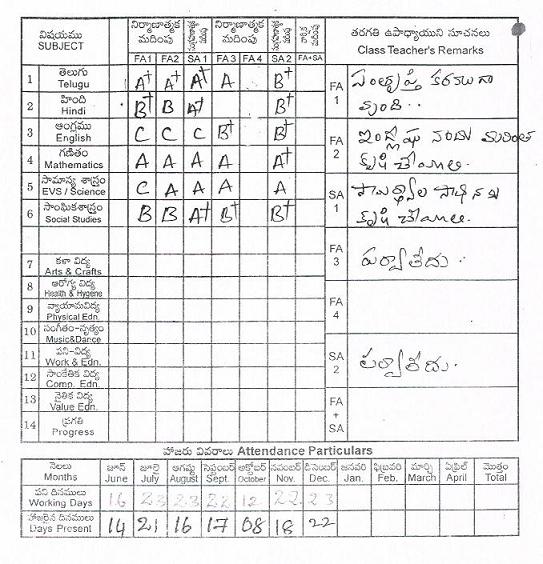 విషయము నిర్మాణాత్మక మదింపు నిర్మాణాత్మక మదింపు తరగతి ఉపాధ్యాయుని సూచనలు
SUBJECT FA1 FA2 SA1 FA3 FA4 SA2 FA+SA Class Teacher's Remarks
1 తెలుగు Telugu A+ A+ A+ A B+ FA 1
ఉంది..
2 హింది Hindi B+ B A+ B+
3 ఆంగ్లము English C C C B+ B+ FA 2
4 గణితం Mathematics A A A A A+
కృషి చేయాలి.
5 సామాన్య శాస్త్రం EVS / Science C A A A A SA 1
6 సాంఘికశాస్త్రం Social Studies B B A+ B+ B+
కృషి చేయాలి.
7 కళా విద్య Arts & Crafts FA 3 పర్వాలేదు.
8 ఆరోగ్య విద్య Health & Hygene
9 వ్యాయామవిద్య Physical Edn. FA 4
10 సంగీతం-నృత్యం Music&Dance
11 పని-విద్య Work & Edn. SA 2 పర్వాలేదు.
12 సాంకేతిక విద్య Comp. Edn.
13 నైతిక విద్య Value Edn. FA + SA
14 ప్రగతి Progress
హాజరు వివరాలు Attendance Particulars
నెలలు జూన్ జూలై ఆగష్టు సెప్టెంబర్ అక్టోబర్ నవంబర్ డిసెంబర్ జనవరి ఫిబ్రవరి మార్చి ఏప్రిల్ మొత్తం
Months June July August Sept. October Nov. Dec. Jan. Feb. March April Total
పని దినములు
Working Days 16 23 23 22 12 22 23
హాజరైన దినములు
Days Present 14 21 16 17 08 18 22